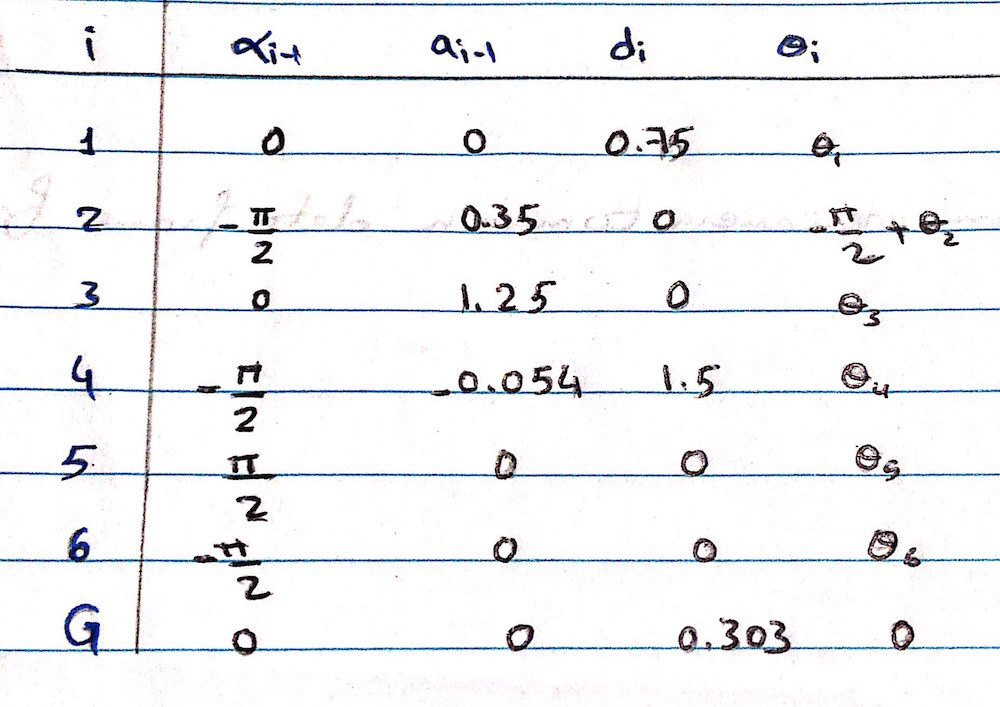 i αi-1 ai-1 di θi
1 0 0 0.75 θ1
2 -π/2 0.35 0 -π/2 + θ2
3 0 1.25 0 θ3
4 -π/2 -0.054 1.5 θ4
5 π/2 0 0 θ5
6 -π/2 0 0 θ6
G 0 0 0.303 0